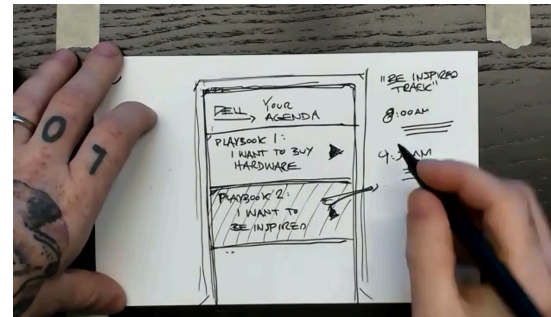 07
DELL YOUR
AGENDA
PLAYBOOK 1:
I WANT TO BUY
HARDWARE
PLAYBOOK 2:
I WANT TO
BE INSPIRED
"BE INSPIRED
TRACK"
8:00AM
AM